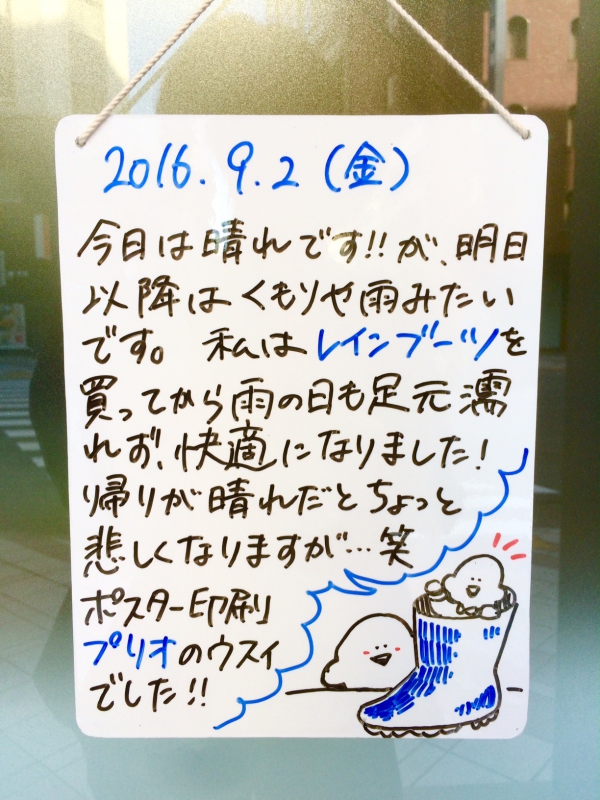 2016.9.2(金)
今日は晴れです!!が、明日
以降はくもりや雨みたい
です。私はレインブーツを
買ってから雨の日も足元濡
れず、快適になりました!
帰りが晴れだとちょっと
悲しくなりますが…笑
ポスター印刷
プリオのウスイ
でした!!